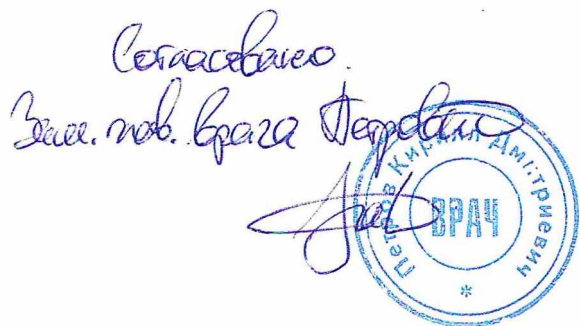 Согласовано.
Зам. глав. врача Петров
Петров Кирилл Дмитриевич
ВРАЧ
*